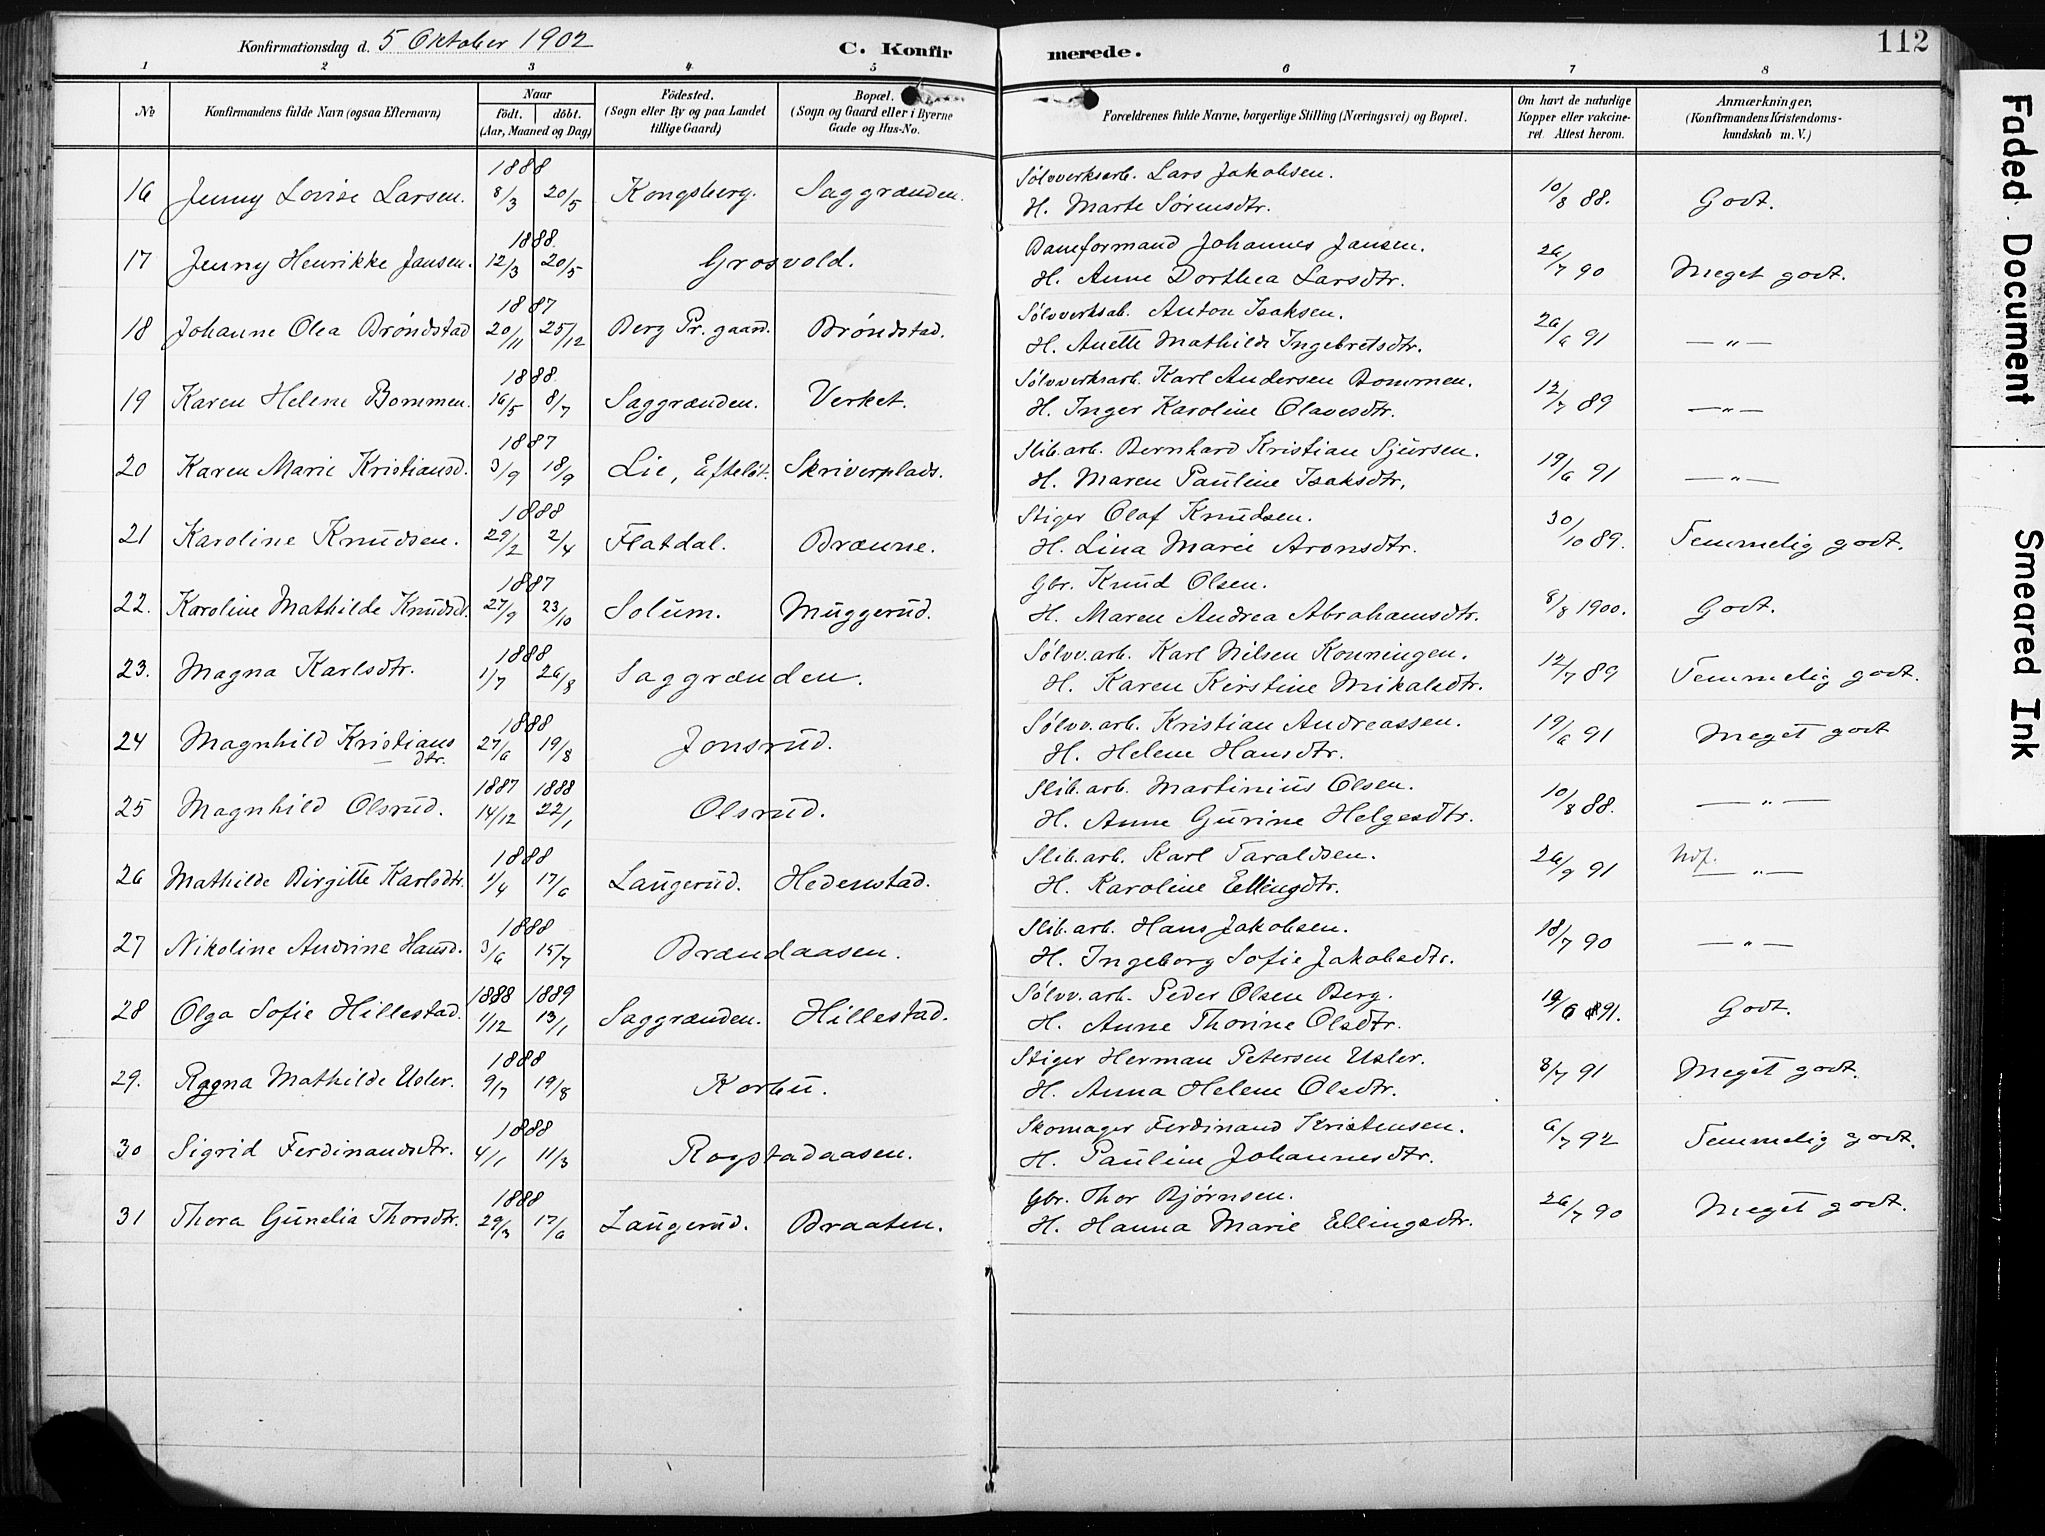 Konfirmationsdag d. 5 Oktober 1902
C. Konfir merede.
112
1 2 3 4 5 6 7 8
No Konfirmandens fulde Navn (ogsaa Efternavn) Naar födt. döbt. (Aar, Maaned og Dag) Födested. (Sogn eller By og paa Landet tillige Gaard) Bopæl. (Sogn og Gaard eller i Byerne Gade og Hus-No. Forældrenes fulde Navne, borgerlige Stilling (Næringsvei) og Bopæl. Om havt de naturlige Kopper eller vakcineret. Attest herom. Anmærkninger, (Konfirmandens Kristendomskundskab m. V.)
16 Jenny Lovise Larsen. 1888 8/3 20/5 Kongsberg. Saggrænden. Sølvverksarb. Lars Jakobsen. 10/8 88. Godt.
H. Marte Sørensdtr.
17 Jenny Henrikke Jansen. 1888. 12/3 20/5 Grosvold. Baneformand Johannes Jansen. 26/7 90 Meget godt.
H. Anne Dorthea Larsdtr.
18 Johanne Olea Brøndstad 1887 20/11 25/12 Berg Pr. gaard. Brøndstad. Sølvverksab. Anton Isaksen. 26/6 91 — " —
H. Anette Mathilde Ingebretsdtr.
19 Karen Helene Bommen. 1888. 16/5 8/7 Saggrænden. Verket. Sølvverksarb. Karl Andersen Bommen. 12/7 89 — " —
H. Inger Karoline Olavesdtr.
20 Karen Marie Kristiansd. 1887 3/9 18/9 Lie, Efteløt. Skriverplads. Slib.arb. Bernhard Kristian Sjursen. 19/6 91 — " —
H. Maren Pauline Isaksdtr.
21 Karoline Knudsen. 1888 29/2 2/4 Flatdal. Brænne. Stiger Olaf Knudsen. 30/10 89. Temmelig godt.
H. Lina Marie Aronsdtr.
22. Karoline Mathilde Knudsd. 1887 27/9 23/10 Solum. Muggerud. Gbr. Knud Olsen. 8/8 1900. Godt.
H. Maren Andrea Abrahamsdtr.
23. Magna Karlsdtr. 1888 1/7 26/8 Saggrænden. Sølvv.arb. Karl Nilsen Konningen. 12/7 89 Temmelig godt.
H. Karen Kirstine Mikalsdtr.
24 Magnhild Kristians dtr. 1888 27/6 19/8 Jonsrud. Sølvv.arb. Kristian Andreassen. 19/6 91 Meget godt
H. Helene Hansdtr.
25 Magnhild Olsrud. 1887 14/12 1888 22/1 Olsrud. Slib.arb. Martinius Olsen. 10/8 88. — " —
H. Anne Gurine Helgesdtr.
26 Mathilde Birgitte Karlsdtr. 1888 1/4 17/6 Laugerud. Hedenstad. Slib.arb. Karl Taraldsen. 26/9 91 — " —
H. Karoline Ellingsdtr.
27 Nikoline Andrine Hansd. 1888 3/6 15/7 Brændaasen. Slib.arb. Hans Jakobsen. 18/7 90 — " —
H. Ingeborg Sofie Jakobsdtr.
28 Olga Sofie Hillestad. 1888 1/12 1889 13/1 Saggrænden. Hillestad. Sølvv.arb. Peder Olsen Berg. 19/6 91. Godt.
H. Anne Thorine Olsdtr.
29. Ragna Mathilde Usler. 1888 9/7 19/8 Korbu. Stiger Herman Petersen Usler. 8/7 91 Meget godt.
H. Anna Helene Olsdtr.
30 Sigrid Ferdinandsdtr. 1888 4/1 11/3 Rogstadaasen. Skomager Ferdinand Kristensen. 6/7 92 Temmelig godt.
H. Pauline Johannesdtr.
31 Thora Gunelia Thorsdtr. 1888 29/3 17/6 Laugerud. Braaten. Gbr. Thor Bjørnsen. 26/7 90 Meget godt.
H. Hanna Marie Ellingsdtr.
Faded Document
Smeared Ink